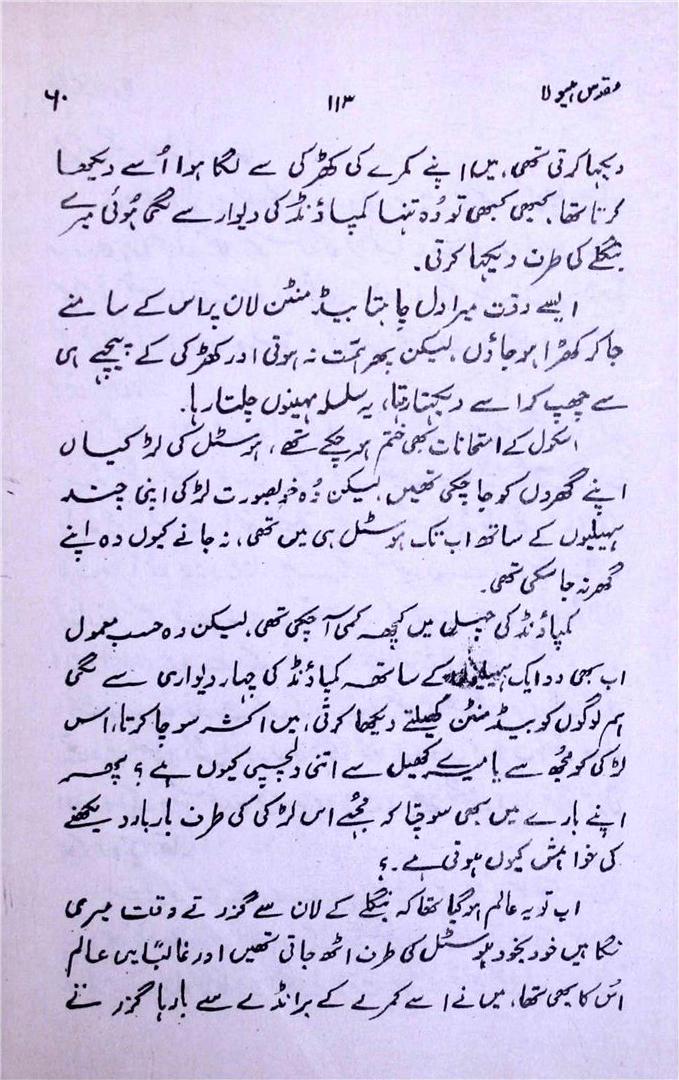 مقدس ہیولا ۱۱۳ ۶۰
دیکھا کرتی تھی، میں اپنے کمرے کی کھڑکی سے لگا ہوا اُسے دیکھا
کرتا تھا. کبھی کبھی تو وُہ تنہا کمپاؤنڈ کی دیوار سے لگی ہُوئی میرے
بنگلے کی طرف دیکھا کرتی.
ایسے وقت میرا دل چاہتا بیڈ منٹن لان پر اس کے سامنے
جا کر کھڑا ہو جاؤں، لیکن پھر ہمّت نہ ہوتی اور کھڑکی کے پیچھے ہی
سے چھپ کر اسے دیکھتا رہتا، یہ سلسلہ مہینوں چلتا رہا.
اسکول کے امتحانات بھی ختم ہو چکے تھے، ہوسٹل کی لڑکیاں
اپنے گھروں کو جا چکی تھیں. لیکن وُہ خوبصورت لڑکی اپنی چند
سہیلیوں کے ساتھ اب تک ہوسٹل ہی میں تھی، نہ جانے کیوں وہ اپنے
گھر نہ جا سکی تھی.
کمپاؤنڈ کی میں کچھ کمی آ چکی تھی. لیکن وہ حسب معمول
اب بھی دو ایک سہیلیوں کے ساتھ کمپاؤنڈ کی چہار دیواری سے لگی
ہم لوگوں کو بیڈ منٹن کھیلتے دیکھا کرتی، میں اکثر سوچا کرتا، اس
لڑکی کو مجھ سے یا میرے کھیل سے اتنی دلچسپی کیوں ہے؟ پھر
اپنے بارے میں بھی سوچتا کہ مجھے اس لڑکی کی طرف بار بار دیکھنے
کی خواہش کیوں ہوتی ہے.؟
اب تو یہ عالم ہو گیا تھا کہ بنگلے کے لان سے گزرتے وقت میری
نگاہیں خود بخود ہوسٹل کی طرف اٹھ جاتی تھیں اور غالبًا یہی عالم
اس کا بھی تھا، میں نے اسے کمرے کے برانڈے سے بارہا گزرنے